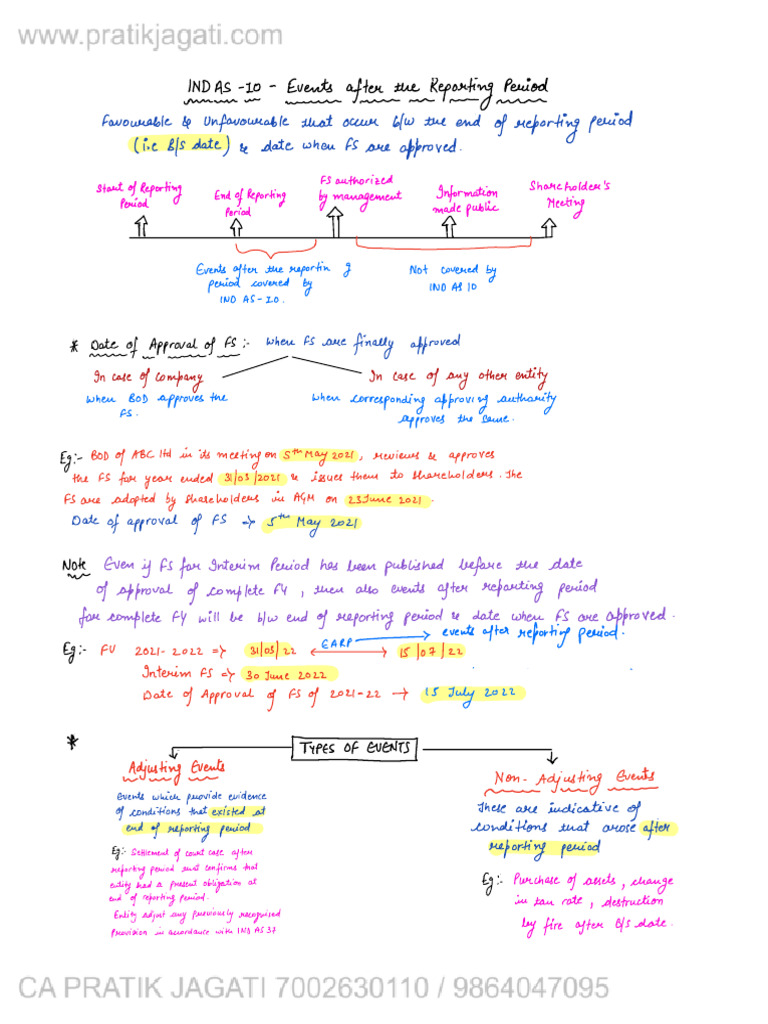 www.pratikjagati.com
IND AS -10 - Events after the Reporting Period
Favourable & Unfavourable that occur b/w the end of reporting period
(i.e B/S date) & date when FS are approved.
Start of Reporting Period
End of Reporting Period
FS authorized by management
Information made public
Shareholder's Meeting
Events after the reporting period covered by IND AS-10.
Not covered by IND AS 10
* Date of Approval of FS :- When FS are finally approved
In case of company
In case of any other entity
When BOD approves the FS.
When corresponding approving authority approves the same.
Eg:- BOD of ABC ltd in its meeting on 5th May 2021, reviews & approves
the FS for year ended 31/03/2021 & issues them to shareholders. The
FS are adopted by shareholders in AGM on 23 June 2021.
Date of approval of FS => 5th May 2021
Note Even if FS for Interim Period has been published before the date
of approval of complete FY, then also events after reporting period
for complete FY will be b/w end of reporting period & date when FS are approved.
EARP events after reporting period.
Eg:- FV 2021-2022 => 31/03/22 15/07/22
Interim FS => 30 June 2022
Date of Approval of FS of 2021-22 → 15 July 2022
* TYPES OF EVENTS
Adjusting Events
Events which provide evidence
of conditions that existed at
end of reporting period
Eg:- Settlement of court case after
reporting period that confirms that
entity had a present obligation at
end of reporting period.
Entity adjust any previously recognised
Provision in accordance with IND AS 37
Non-Adjusting Events
These are indicative of
conditions that arose after
reporting period
Eg:- Purchase of assets, change
in tax rate, destruction
by fire after B/S date.
CA PRATIK JAGATI 7002630110 / 9864047095